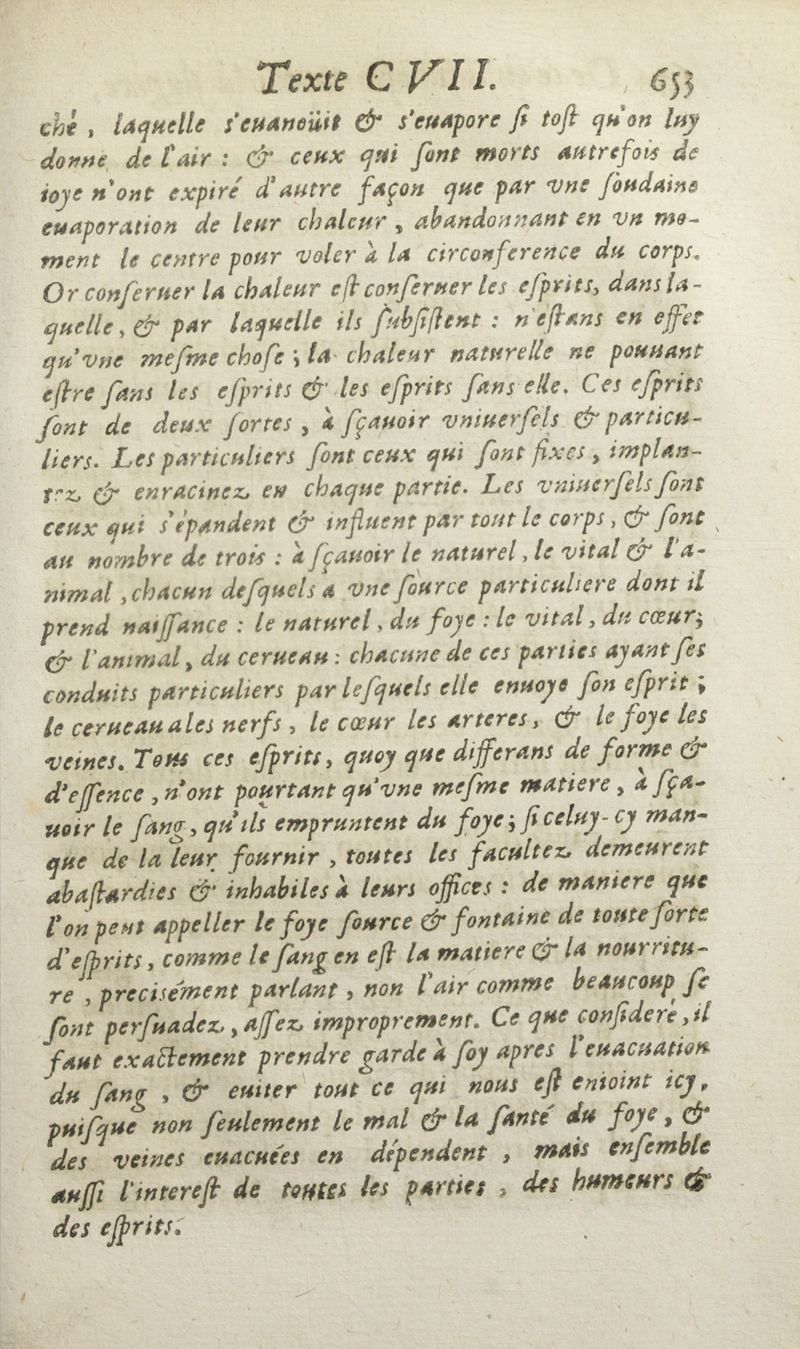 Texte CVII. 653
ché, laquelle s'euanoüit & s'euapore ſi toſt qu'on luy
donne de l'air : & ceux qui ſont morts autrefois de
ioye n'ont expiré d'autre façon que par vne ſoudaine
euaporation de leur chaleur, abandonnant en vn mo-
ment le centre pour voler à la circonference du corps.
Or conſeruer la chaleur eſt conſeruer les eſprits, dans la-
quelle, & par laquelle ils ſubſiſtent : n'eſtans en effet
qu'vne meſme choſe ; la chaleur naturelle ne pouuant
eſtre ſans les eſprits & les eſprits ſans elle. Ces eſprits
ſont de deux ſortes, à ſçauoir vniuerſels & particu-
liers. Les particuliers ſont ceux qui ſont fixes, implan-
tez & enracinez en chaque partie. Les vniuerſels ſont
ceux qui s'épandent & influent par tout le corps, & ſont
au nombre de trois : à ſçauoir le naturel, le vital & l'a-
nimal, chacun deſquels a vne ſource particuliere dont il
prend naiſſance : le naturel, du foye : le vital, du cœur;
& l'animal, du cerueau : chacune de ces parties ayant ſes
conduits particuliers par leſquels elle enuoye ſon eſprit ;
le cerueau a les nerfs, le cœur les arteres, & le foye les
veines. Tous ces eſprits, quoy que differans de forme &
d'eſſence, n'ont pourtant qu'vne meſme matiere, à ſça-
uoir le ſang, qu'ils empruntent du foye ; ſi celuy-cy man-
que de la leur fournir, toutes les facultez demeurent
abaſtardies & inhabiles à leurs offices : de maniere que
l'on peut appeller le foye ſource & fontaine de toute ſorte
d'eſprits, comme le ſang en eſt la matiere & la nourritu-
re, precisément parlant, non l'air comme beaucoup ſe
ſont perſuadez, aſſez improprement. Ce que conſideré, il
faut exactement prendre garde à ſoy apres l'euacuation
du ſang, & euiter tout ce qui nous eſt enioint icy,
puiſque non ſeulement le mal & la ſanté du foye, &
des veines euacuées en dépendent, mais enſemble
auſſi l'intereſt de toutes les parties, des humeurs &
des eſprits.